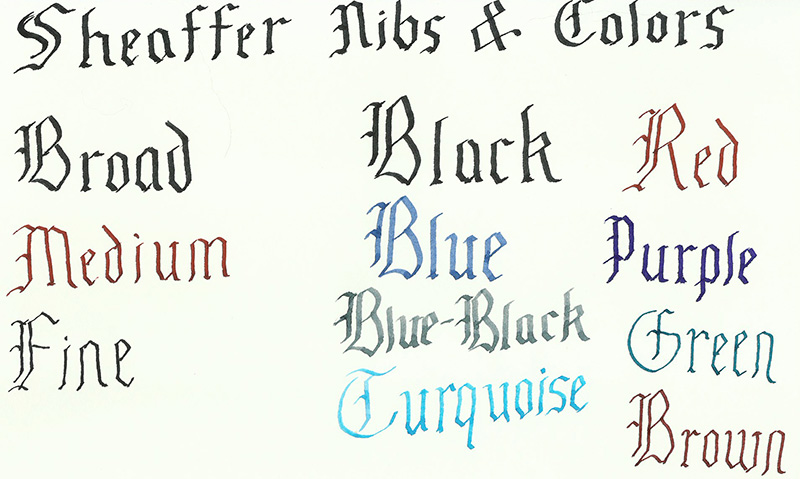 Sheaffer Nibs & Colors
Broad
Medium
Fine
Black
Blue
Blue-Black
Turquoise
Red
Purple
Green
Brown